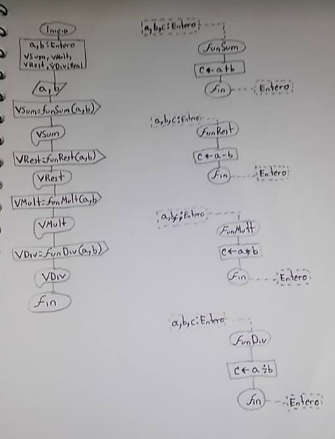 Inicio
a,b:Entero
VSum, VMult,
VRest, VDiv:Real
a,b
VSum=funSum(a,b)
VSum
VRest=funRest(a,b)
VRest
VMult=funMult(a,b)
VMult
VDiv=funDiv(a,b)
VDiv
fin
a,b,c:Entero
funSum
c←a+b
fin
Entero
a,b,c:Entero
funRest
c←a-b
fin
Entero
Entero
funMult
c←a*b
fin
Entero
a,b,c:Entero
funDiv
c←a÷b
fin
Entero